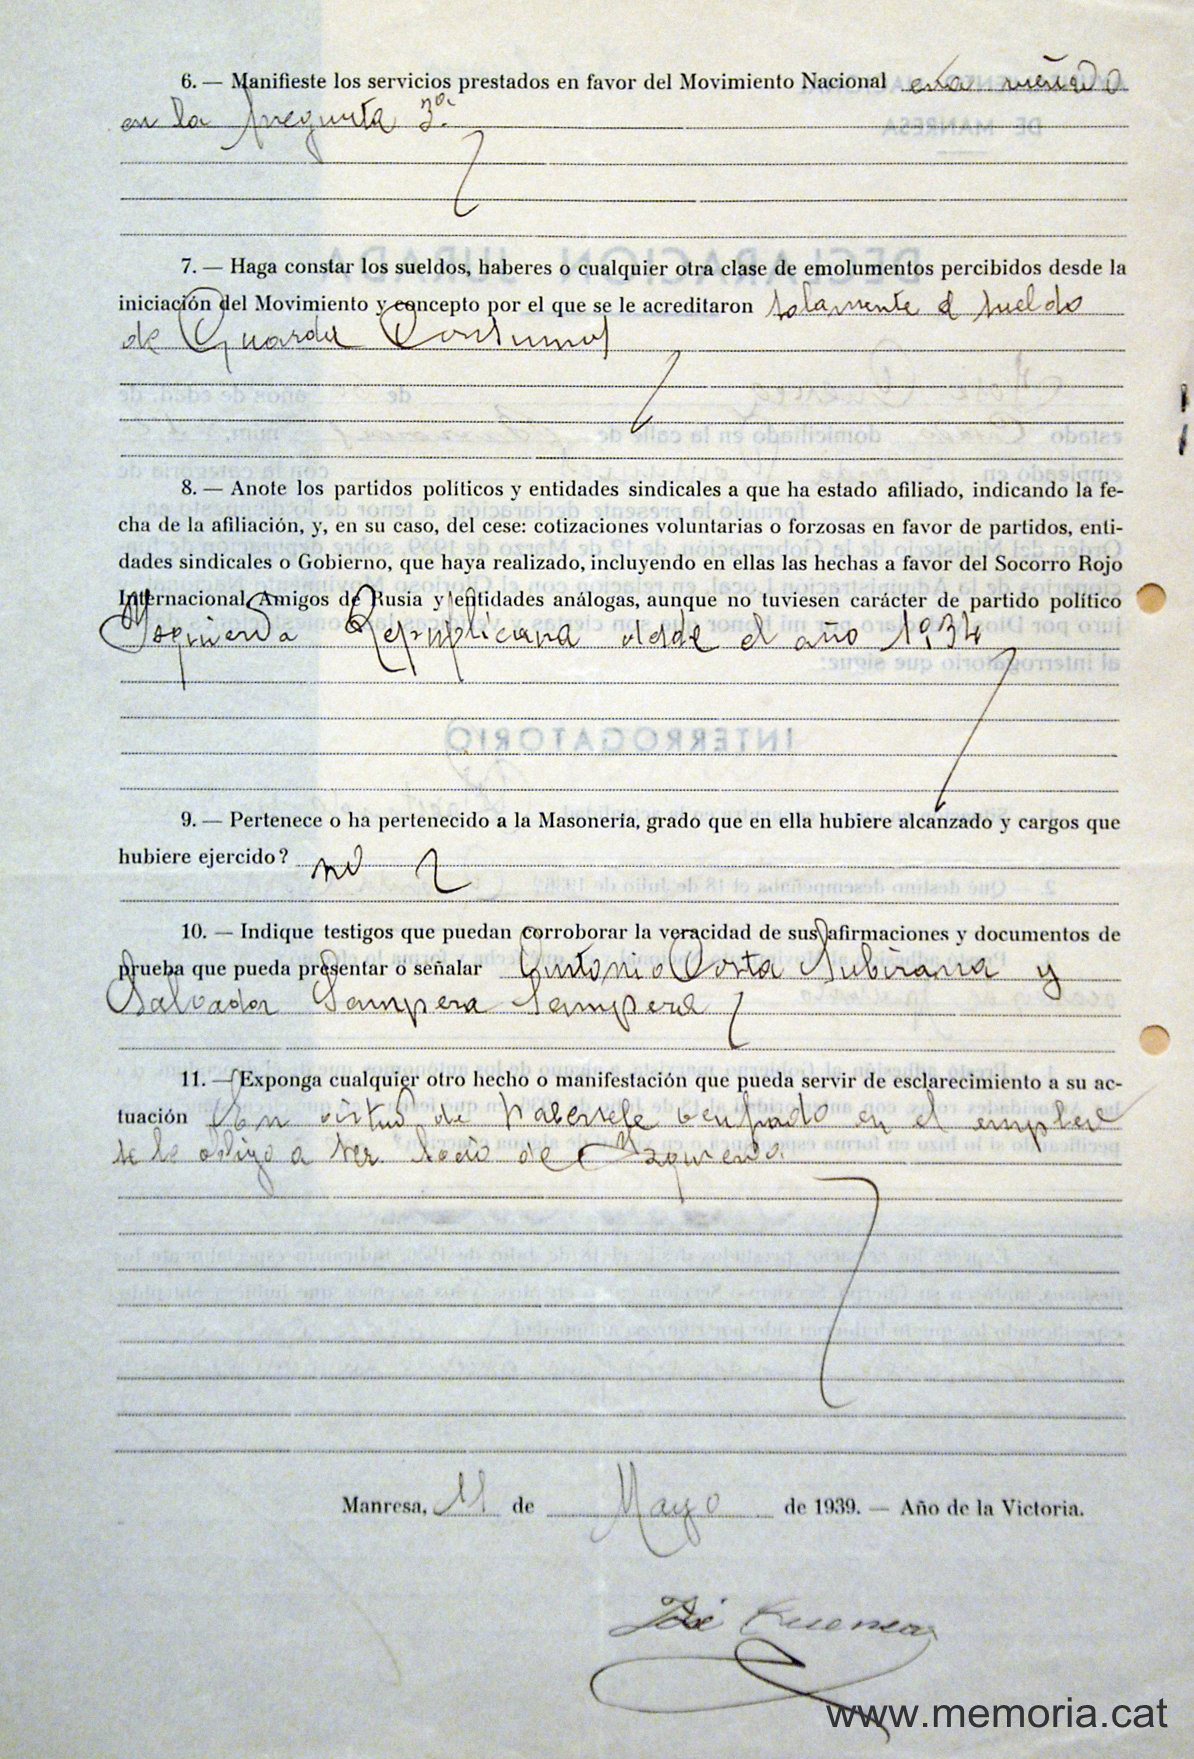 6. — Manifieste los servicios prestados en favor del Movimiento Nacional esta
en la pregunta 3ª.
7. — Haga constar los sueldos, haberes o cualquier otra clase de emolumentos percibidos desde la
iniciación del Movimiento y concepto por el que se le acreditaron solamente el sueldo
de Guarda Consumos
8. — Anote los partidos políticos y entidades sindicales a que ha estado afiliado, indicando la fe-
cha de la afiliación, y, en su caso, del cese: cotizaciones voluntarias o forzosas en favor de partidos, enti-
dades sindicales o Gobierno, que haya realizado, incluyendo en ellas las hechas a favor del Socorro Rojo
Internacional, Amigos de Rusia y entidades análogas, aunque no tuviesen carácter de partido político
Esquierda Republicana desde el año 1934
9. — Pertenece o ha pertenecido a la Masonería, grado que en ella hubiere alcanzado y cargos que
hubiere ejercido? no
10. — Indique testigos que puedan corroborar la veracidad de sus afirmaciones y documentos de
prueba que pueda presentar o señalar Antonio Costa Subirana y
Salvador Sampera Sampera
11. — Exponga cualquier otro hecho o manifestación que pueda servir de esclarecimiento a su ac-
tuación En virtud de habersele ocupado en el empleo
se le obligo a ser socio de Ezquierda
Manresa, 11 de Mayo de 1939. — Año de la Victoria.
José Cuenca
www.memoria.cat